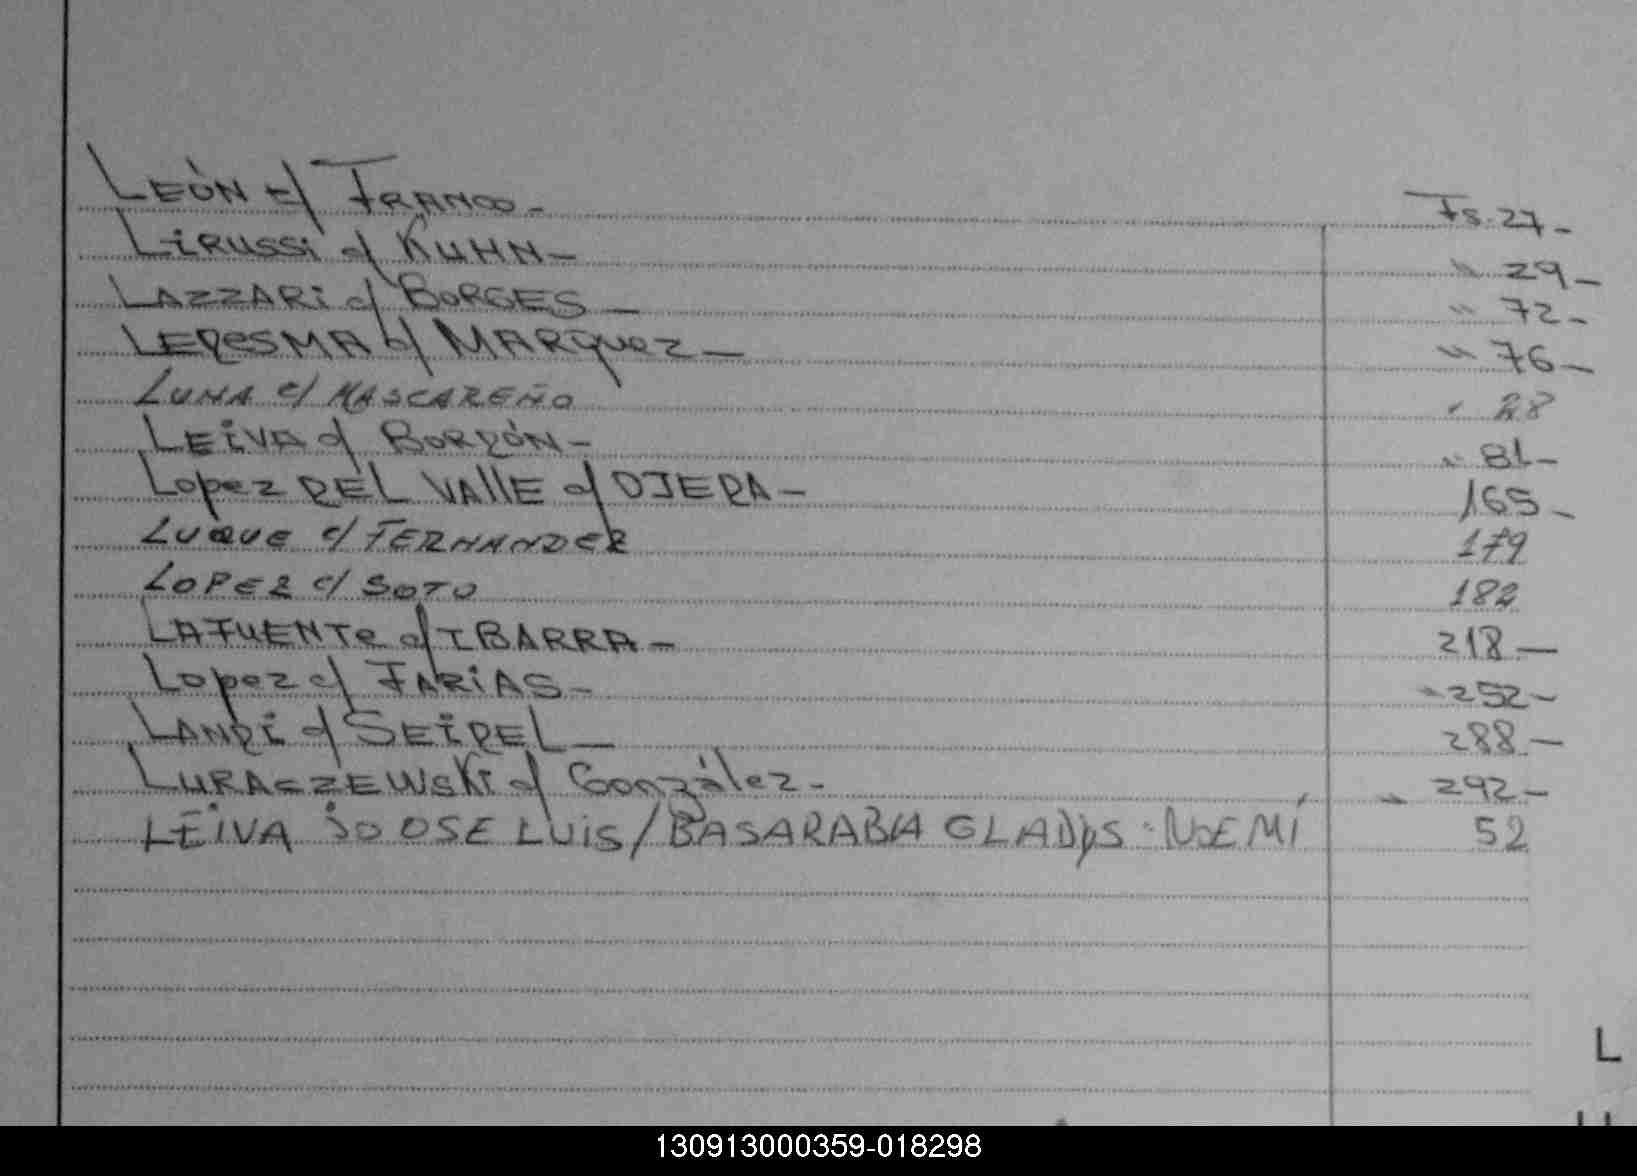 LEÓN c/ FRANCO - Fs. 27 -
LIRUSSI c/ KUHN - " 29 -
LAZZARI c/ BORGES - " 72 -
LEDESMA c/ MARQUEZ - " 76 -
LUNA c/ MASCAREÑO " 28
LEIVA c/ BORDÓN - " 81 -
LOPEZ DEL VALLE c/ OJEDA - 165 -
LUQUE c/ FERNANDEZ 179
LOPEZ c/ SOTO 182
LAFUENTE c/ IBARRA - 218 -
LOPEZ c/ FARIAS - " 252 -
LANDI c/ SEIDEL - 288 -
c/ González - " 292 -
LEIVA LUIS / BASARABIA GLADYS NOEMÍ 52
L
130913000359-018298